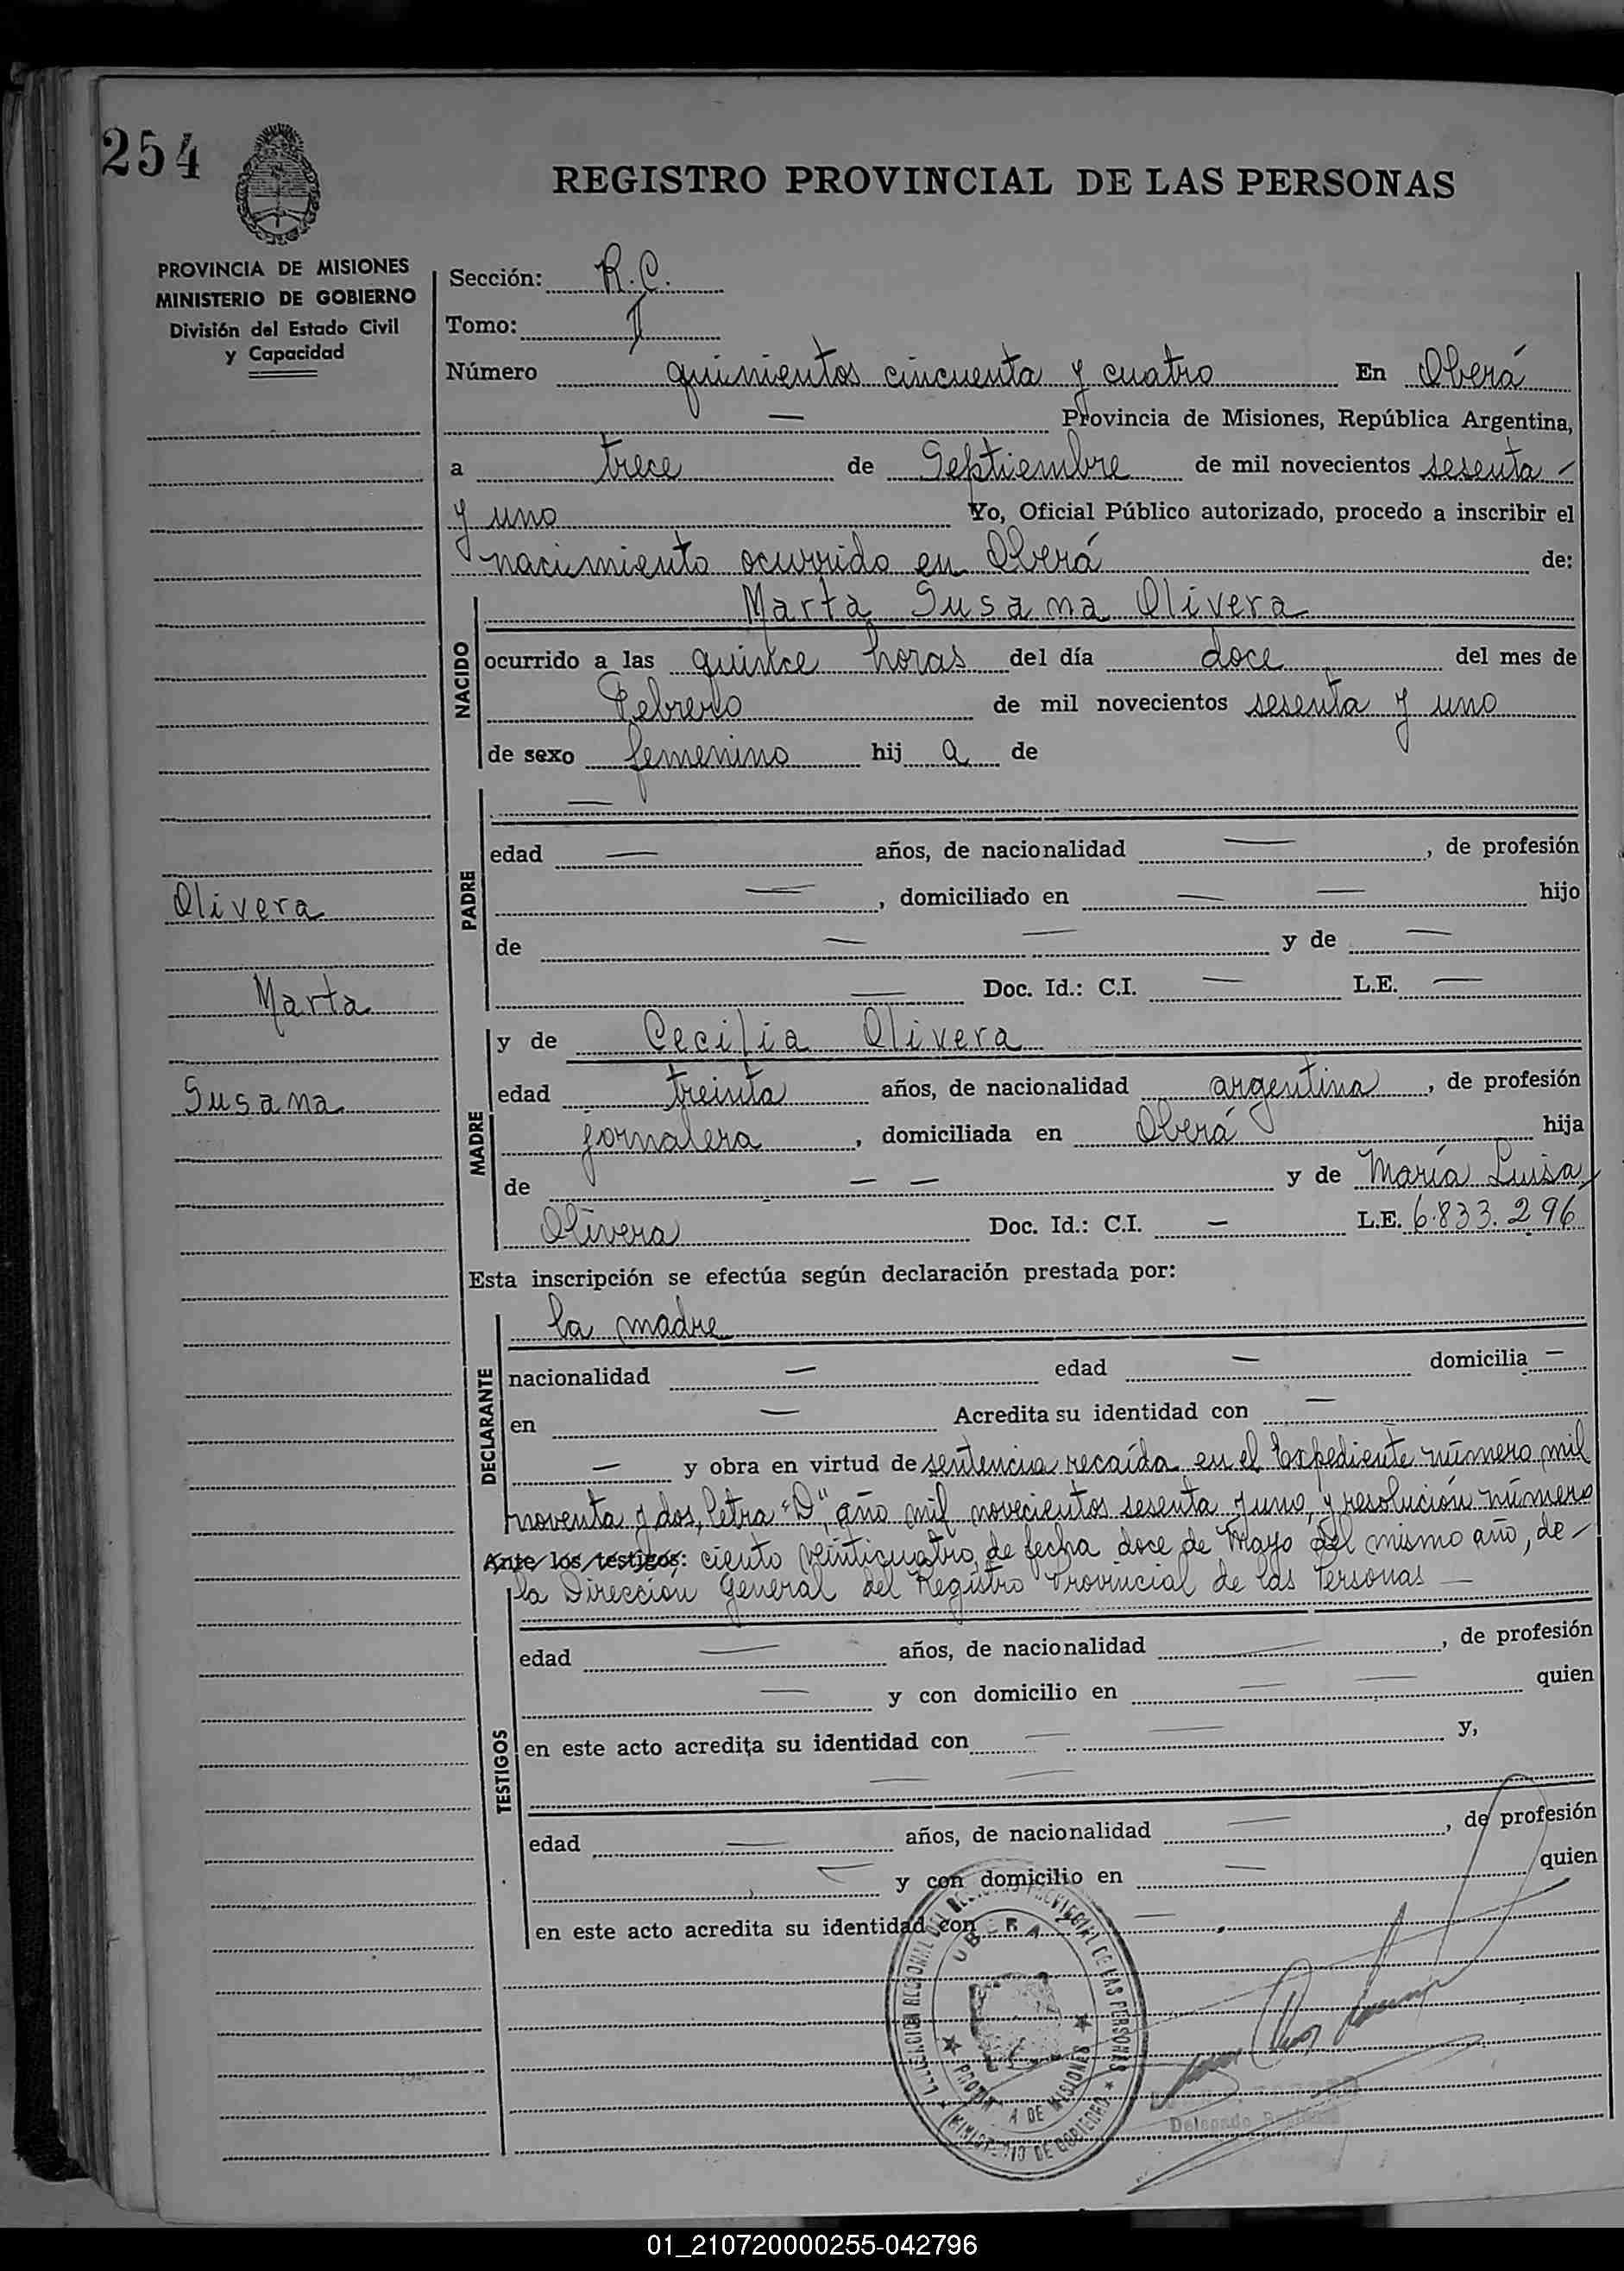 254
REGISTRO PROVINCIAL DE LAS PERSONAS
PROVINCIA DE MISIONES
MINISTERIO DE GOBIERNO
División del Estado Civil
y Capacidad
Sección: R.C.
Tomo: II
Número quinientos cincuenta y cuatro En Oberá
— Provincia de Misiones, República Argentina,
a trece de Septiembre de mil novecientos sesenta —
y uno Yo, Oficial Público autorizado, procedo a inscribir el
nacimiento ocurrido en Oberá de:
NACIDO
Marta Susana Olivera
ocurrido a las quince horas del día doce del mes de
Febrero de mil novecientos sesenta y uno
de sexo femenino hij a de
PADRE
—
edad — años, de nacionalidad —, de profesión
—, domiciliado en — — hijo
de — — y de —
— Doc. Id.: C.I. — L.E. —
Olivera
Marta
Susana
MADRE
y de Cecilia Olivera
edad treinta años, de nacionalidad argentina, de profesión
jornalera, domiciliada en Oberá hija
de — — y de María Luisa
Olivera Doc. Id.: C.I. — L.E. 6.833.296
Esta inscripción se efectúa según declaración prestada por:
DECLARANTE
la madre
nacionalidad — edad — domicilia —
en — Acredita su identidad con —
— y obra en virtud de sentencia recaída en el Expediente número mil
noventa y dos, letra "D", año mil novecientos sesenta y uno, y resolución número
Ante los testigos: ciento veinticuatro, de fecha doce de Mayo del mismo año, de —
la Dirección General del Registro Provincial de las Personas —
TESTIGOS
edad — años, de nacionalidad —, de profesión
— y con domicilio en — — quien
en este acto acredita su identidad con — — y,
— —
edad — años, de nacionalidad —, de profesión
— y con domicilio en — quien
en este acto acredita su identidad con —.
REGIONAL DEL REGISTRO PROVINCIAL DE LAS PERSONAS
OBERA
DE MISIONES
MINISTERIO DE GOBIERNO
Delegado Regional
01_210720000255-042796